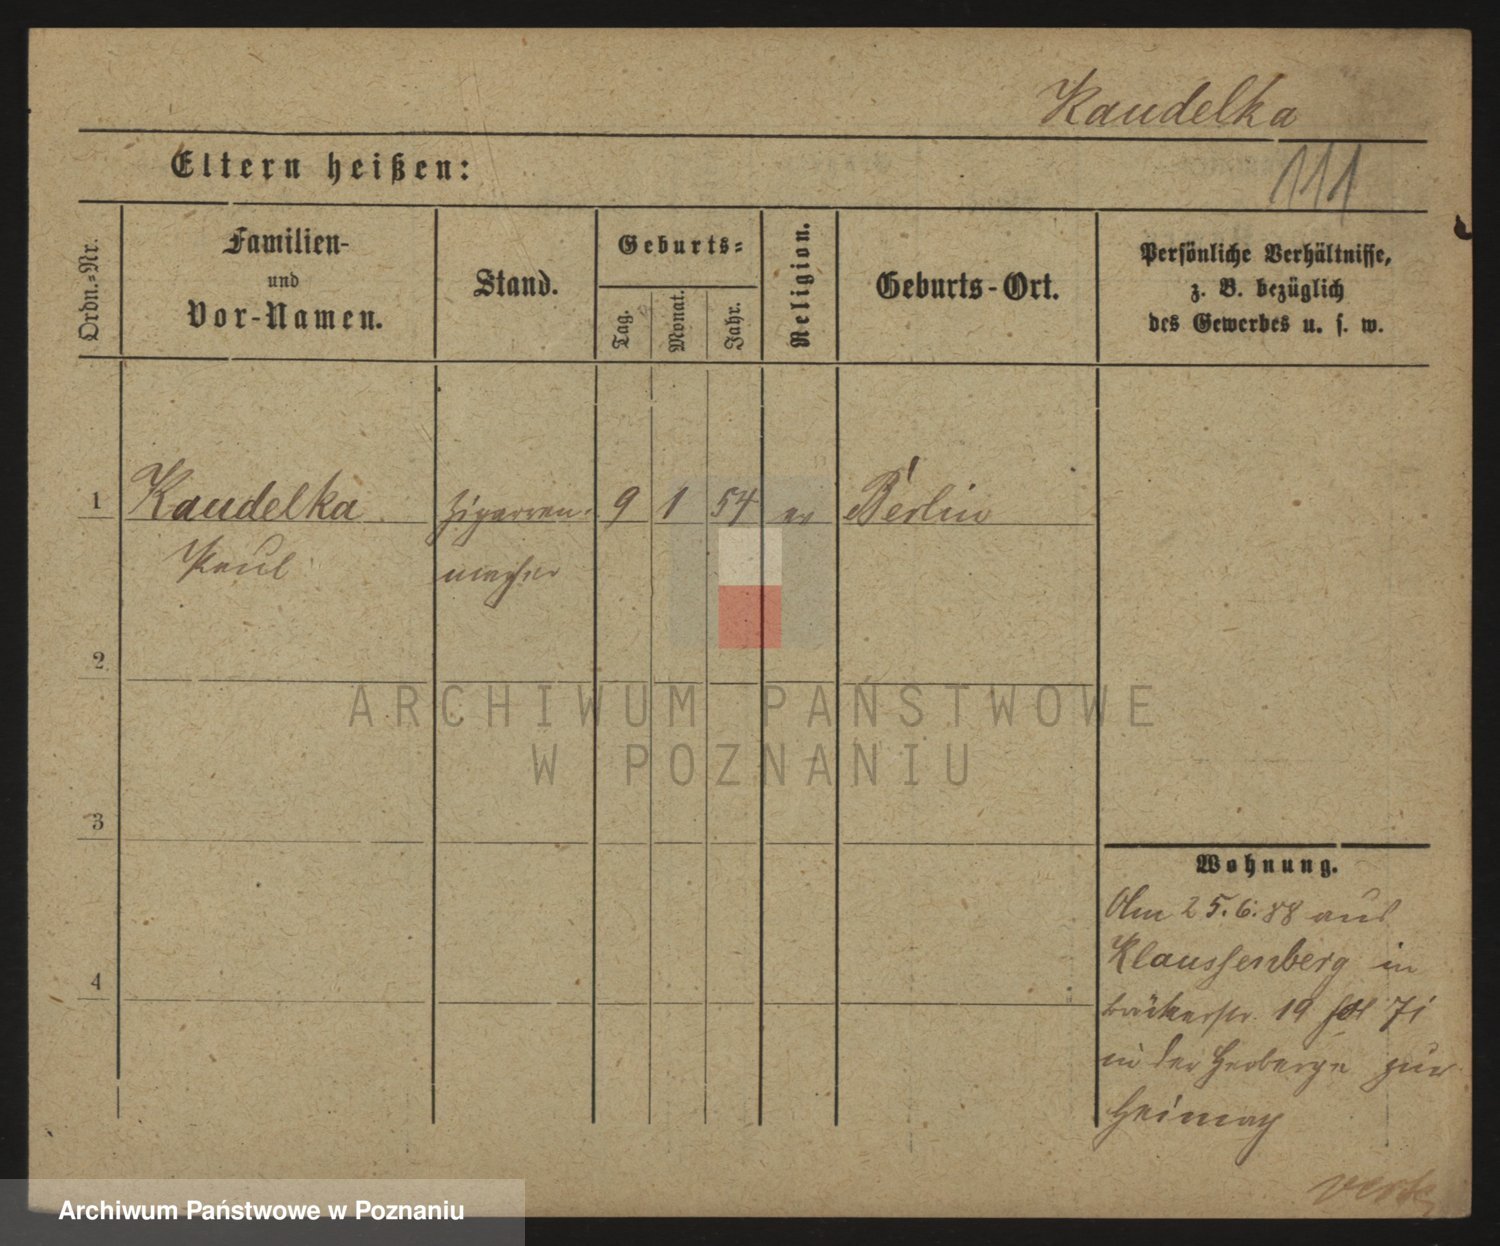 Kaudelka
111
Eltern heißen:
Ordn.-Nr.
Familien-
und
Vor-Namen.
Stand.
Geburts-
Tag.
Monat.
Jahr.
Religion.
Geburts-Ort.
Persönliche Verhältnisse,
z. B. bezüglich
des Gewerbes u. s. w.
1 Kaudelka Zigarren- 9 1 54 ev Berlin
Paul macher
2
3
4
Wohnung.
Am 25.6.88 aus
Klaussenberg in
Bäckerstr. 19
in der Herberge zur
Heimath
ARCHIWUM PAŃSTWOWE
W POZNANIU
Archiwum Państwowe w Poznaniu